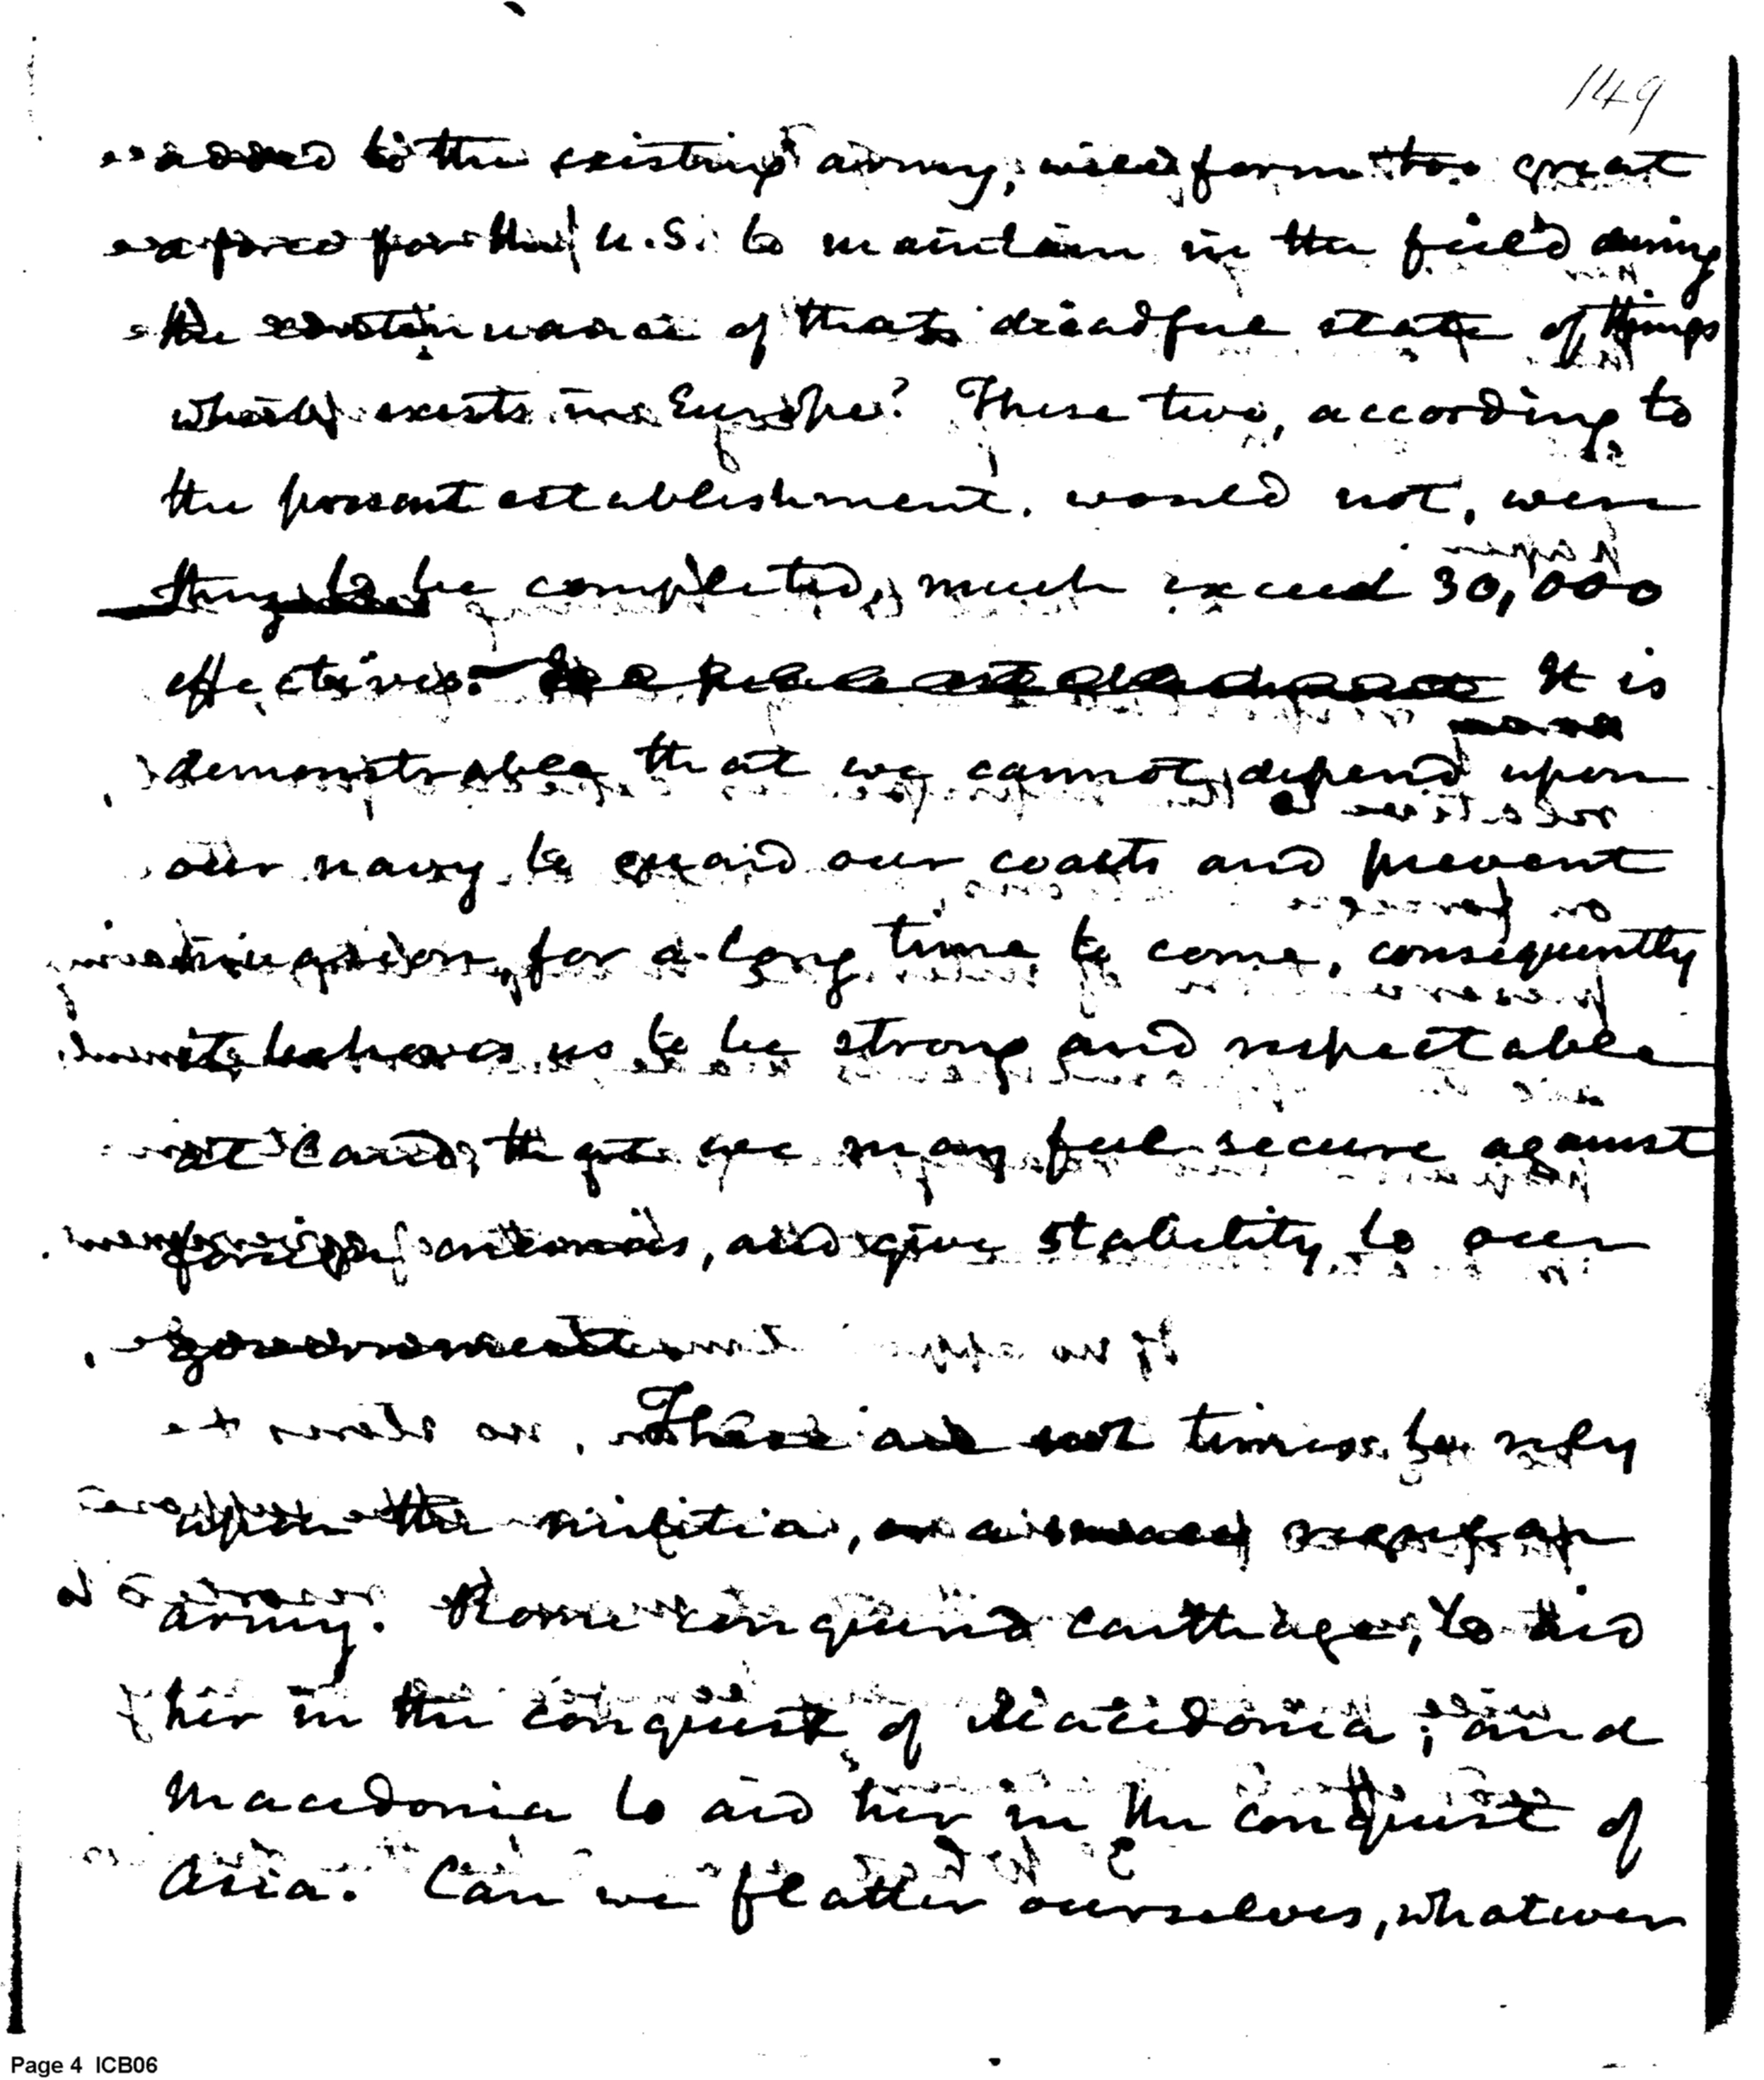 149
added to the existing army, will form too great
a force for the U.S. to maintain in the field during
the continuance of that dreadful state of things
which exists in Europe? These two, according to
the present establishment, would not, were
they to be completed, much exceed 30,000
effectives. It is
demonstrable that we cannot depend upon
our navy to guard our coasts and prevent
invasion, for a long time to come, consequently
it behoves us to be strong and respectable
at land, that we may feel secure against
foreign enemies, and give stability to our
government
These are not times to rely
upon the militia, or a small regular
army. Rome conquered Carthage, to aid
her in the conquest of Macedonia; and
Macedonia to aid her in the conquest of
Asia. Can we flatter ourselves, whatever
Page 4 ICB06